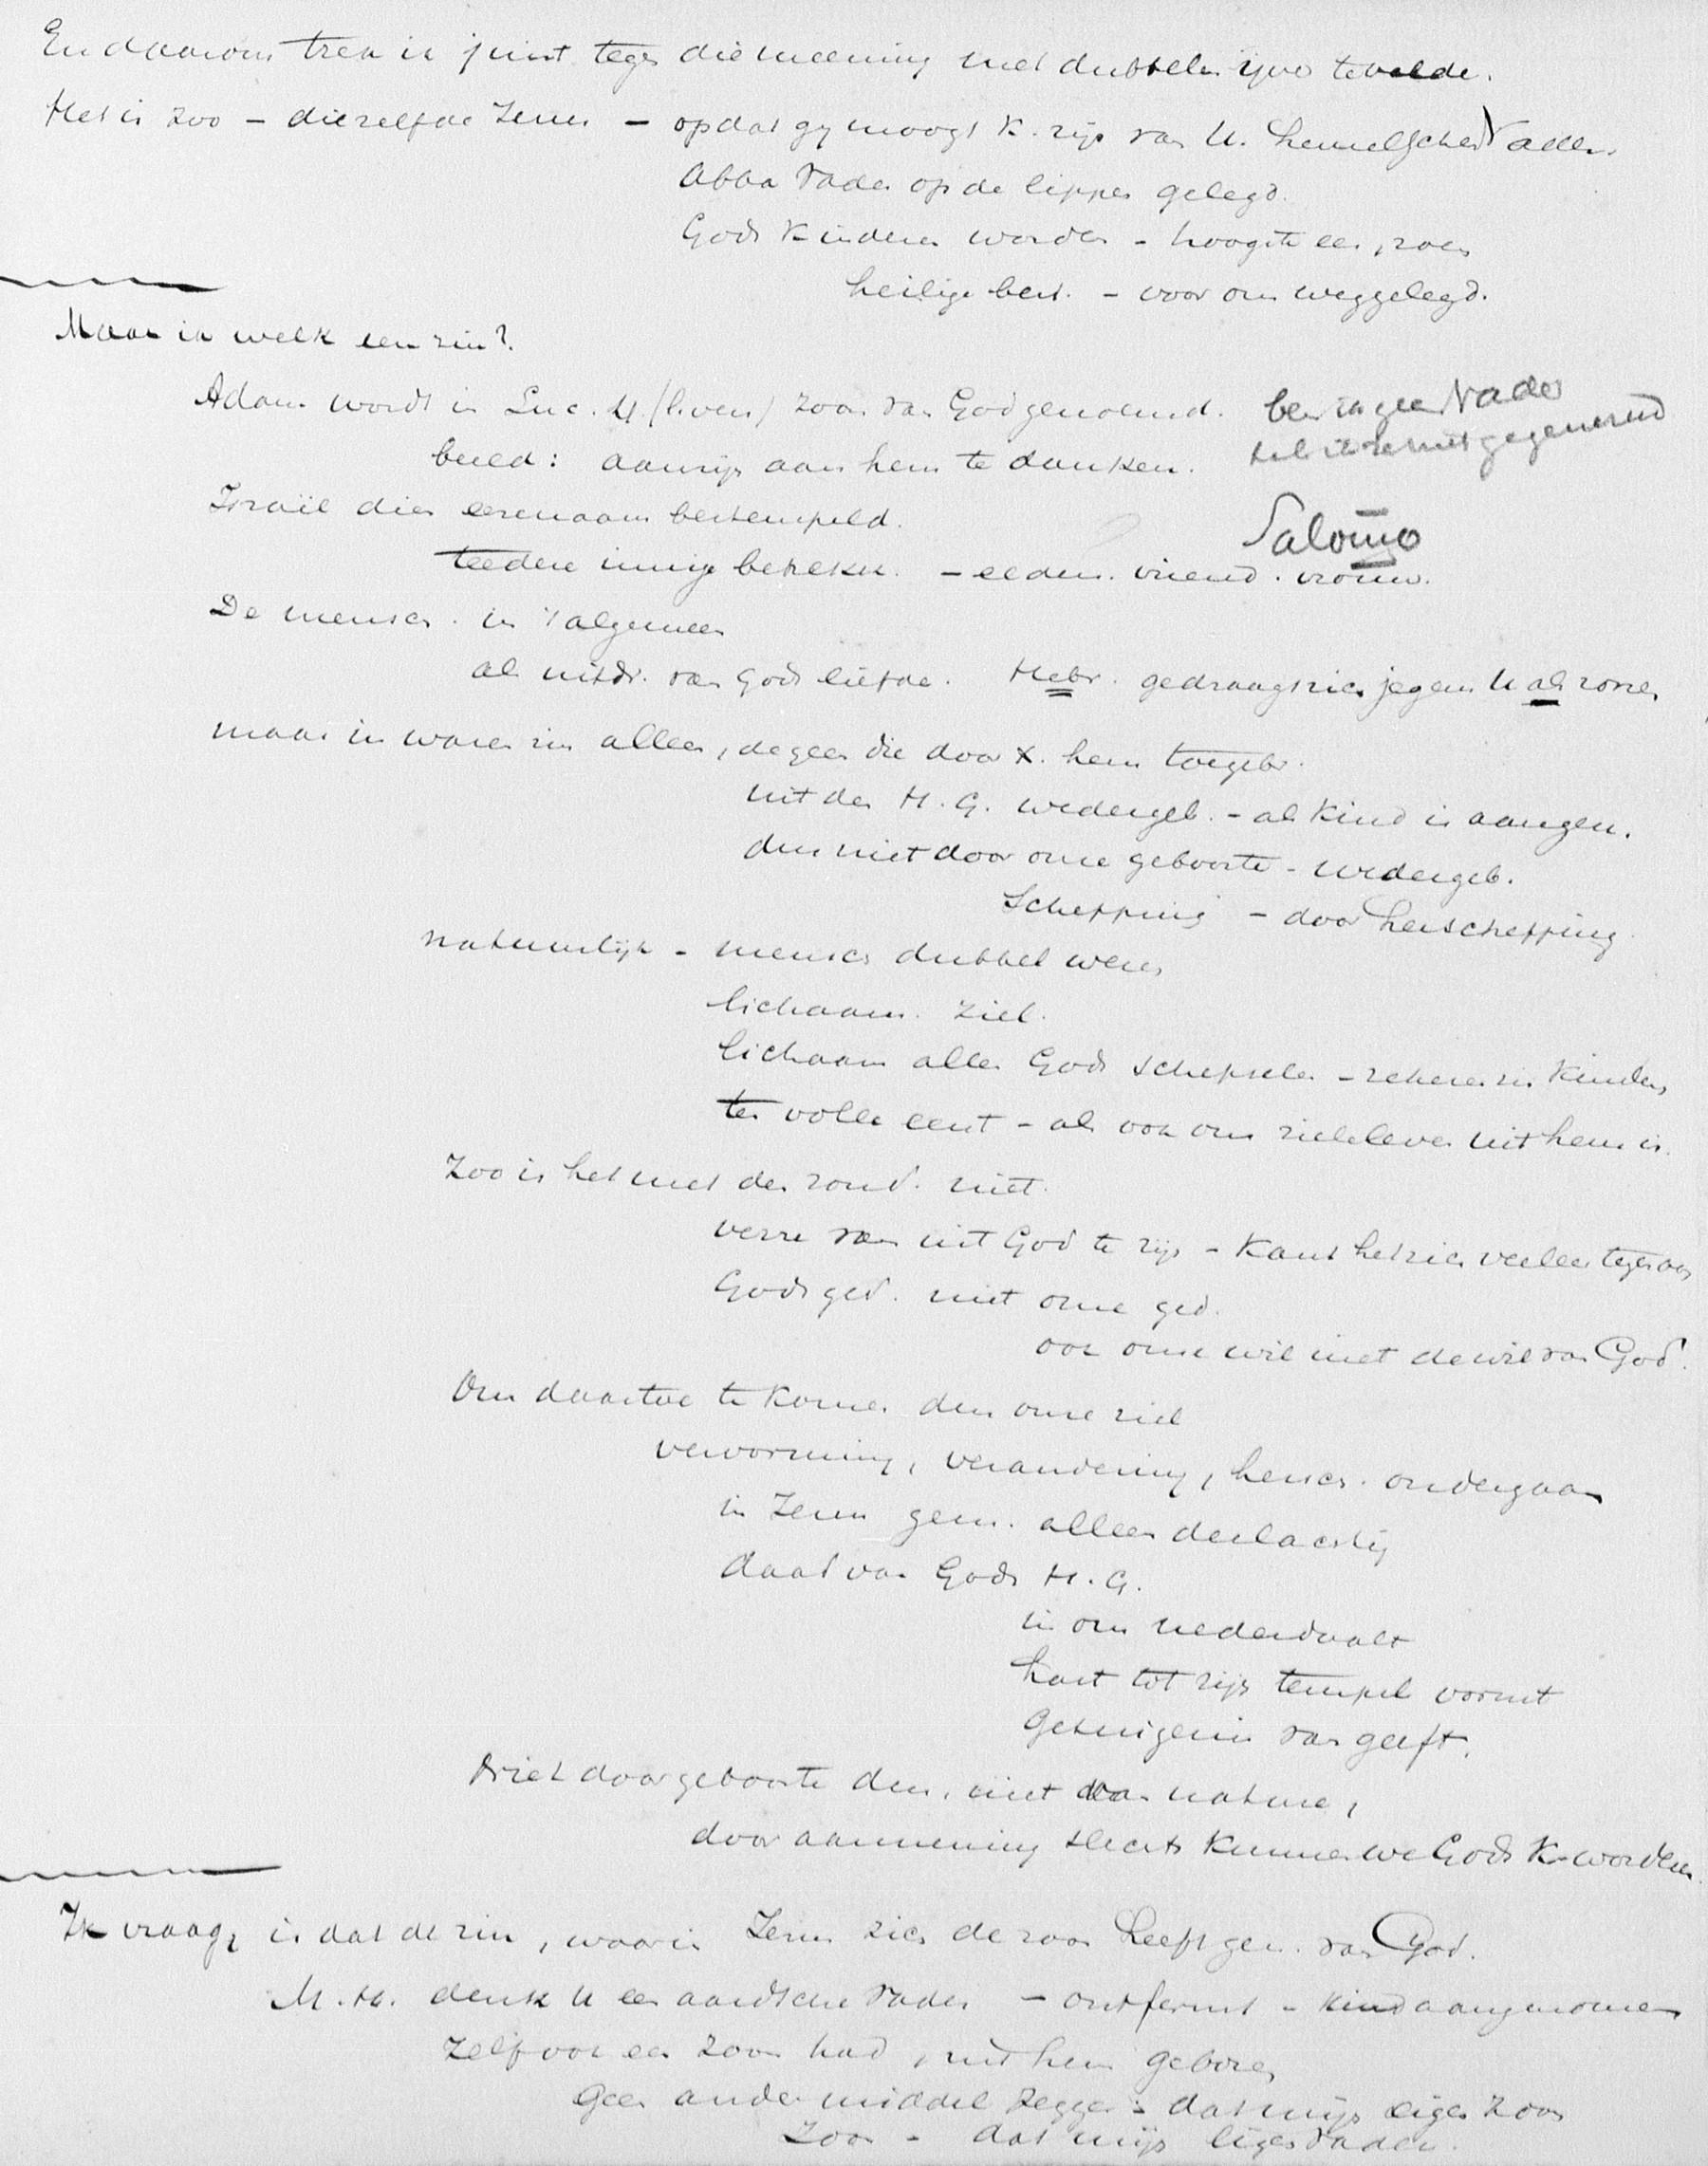 En daarom trek ik juist tegen die meening met dubbelen ijver te velde.
Het is zoo – diezelfde Jezus – opdat gij moogt K. zijn van U. hemelschen Vader.
Abba Vader op de lippen gelegd.
Gods Kinderen worden – hoogste eer, roem
heilige best. – voor ons weggelegd.
Maar in welk een zin?
Adam wordt in Luc. 4 (lezen) zoon van God genoemd. ben ik geen Vader
beeld: aanzijn aan hem te danken. heb ik ze niet gegenereerd
Israël dien eerenaam bestempeld. Salomo
teedere innige betrekk. – elders. vriend. vrouw.
De mensch. in 't algemeen
als uitdr. van Gods liefde. Hebr. gedraagt zich jegens U als zonen
maar in waren zin alleen, degeen die door X. hem toegebr.
uit den H. G. wedergeb. – als Kind is aangen.
dus niet door onze geboorte – wedergeb.
Schepping – door herschepping.
natuurlijk – mensch dubbel wezen
lichaam. ziel.
lichaam allen Gods schepselen – zekeren zin Kinderen
ten volle eerst – als ook ons zieleleven uit hem is.
Zoo is het met den zond. niet.
verre van uit God te zijn – Kant het zich veeleer tegen over
Gods ged. niet onze ged.
ook onze wil niet de wil van God.
Om daartoe te komen dus onze ziel
vervorming, verandering, hersch. ondergaan
in Jezus gem. alleen deelachtig
daad van Gods H. G.
in ons nederdaalt
hart tot zijn tempel vormt
getuigenis van geeft.
Niet door geboorte dus, niet van nature,
door aanneming slechts kunnen we Gods K. worden.
Ik vraag, is dat de zin, waarin Jezus zich de zoon heeft gen. van God.
M. H. denk U een aardsche Vader – ontfermt – kind aangenomen
Zelf ook een zoon had, uit hem geboren
Geen ander middel zeggen: dat mijn eigen zoon
Zoon – dat mijn eigen Vader.